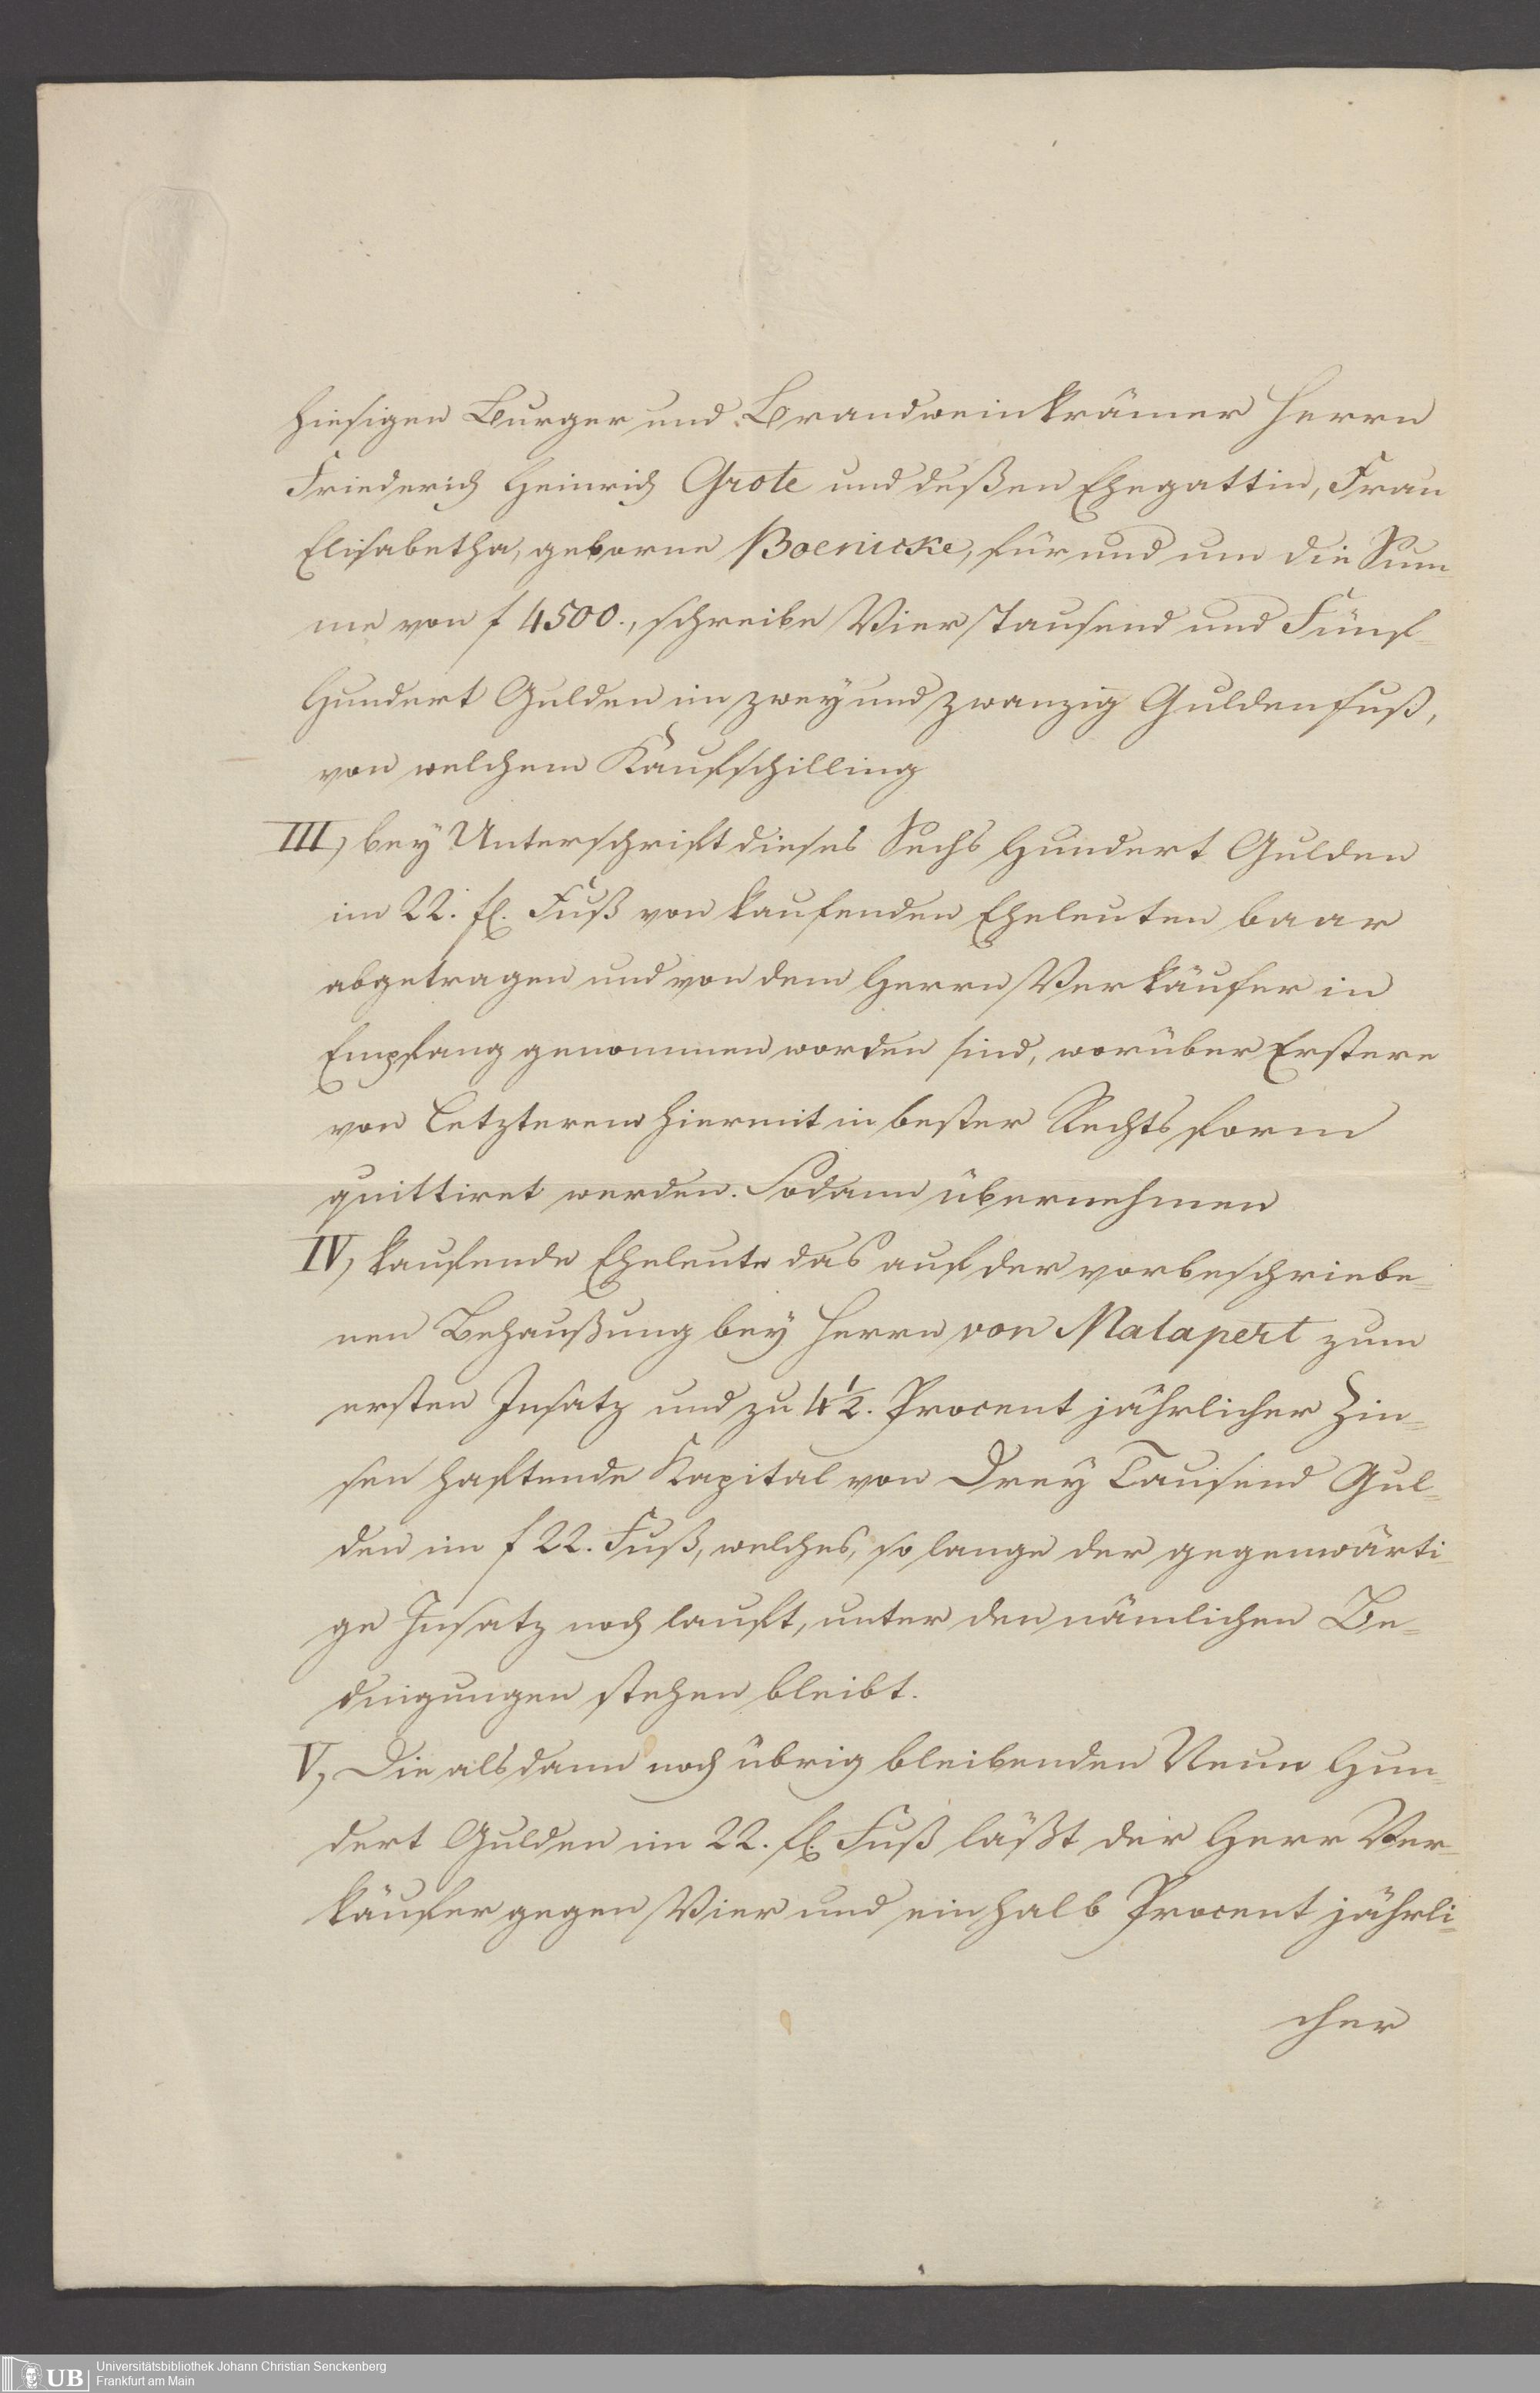 hiesigen Burger und Brandweinkrämer Herrn
Friederich Heinrich Grote und deßen Ehegattin, Frau
Elisabetha, geborne Boenicke, für und um die Sum-
me von f 4500., schreibe Vier Tausend und Fünf-
Hundert Gulden im zwey und zwanzig Guldenfuß,
von welchem Kaufschilling
III, bey Unterschrift dieses Sechs Hundert Gulden
im 22. fl. Fuß von kaufenden Eheleuten baar
abgetragen und von dem Herrn Verkäufer in
Empfang genommen worden sind, worüber Erstere
von Letzterem hiermit in bester Rechtsform
quittiret werden. Sodann übernehmen
IV, kaufende Eheleute das auf der vorbeschriebe=
nen Behaußung bey Herrn von Malapert zum
ersten Insatz und zu 4½. Procent jährlicher Zin=
sen haftende Kapital von Drey Tausend Gul=
den im f 22. Fuß, welches, so lange der gegenwärti-
ge Insatz noch lauft, unter den nämlichen Be=
dingungen stehen bleibt.
V, Die alsdann noch übrig bleibenden Neun Hun-
dert Gulden im 22. fl. Fuß läßt der Herr Ver-
käufer gegen Vier und ein halb Procent jährli=
cher
UB
Universitätsbibliothek Johann Christian Senckenberg
Frankfurt am Main